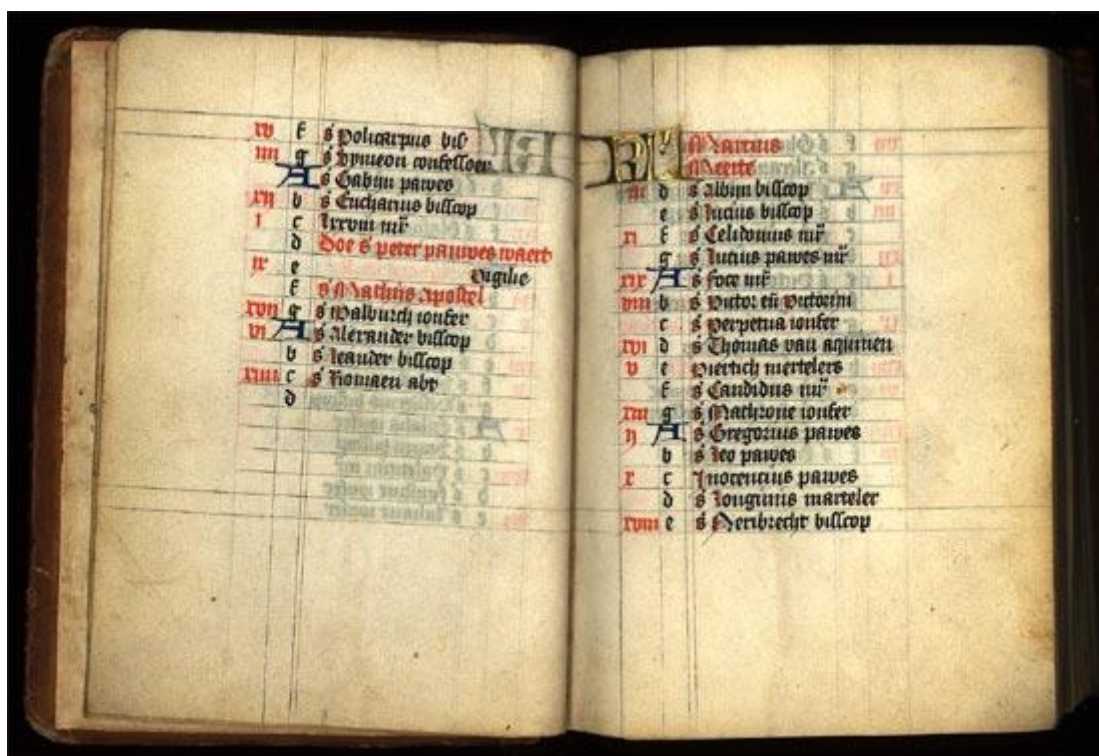 xv f s' Policarpus bis'
iiii g s' Symeon confessoer
A s' Gabijn pawes
xij b s' Eucharius bisscop
i c lxxviii mr̄
d Doe s' peter pauwes waert
ix e Vigilie
f s' Mathijs apostel
xvij g s' Walburch ionfer
vi A s' Alexander bisscop
b s' leander bisscop
xiiii c s' Romaen abt
d
KL Marcius
Meerte
iii d s' Albijn bisscop
e s' lucius bisscop
xi f s' Celidonius mr̄
g s' lucius pawes mr̄
xix A s' foce mr̄
viii b s' Victor en̄ Victorini
c s' Perpetua ionfer
xvi d s' Thomas van aquinen
v e viertich mertelers
f s' Candidus mr̄
xiii g s' Mathrone ionfer
ij A s' Gregorius pawes
b s' leo pawes
x c Inocencius pawes
d s' longinus marteler
xviii e s' Heribrecht bisscop